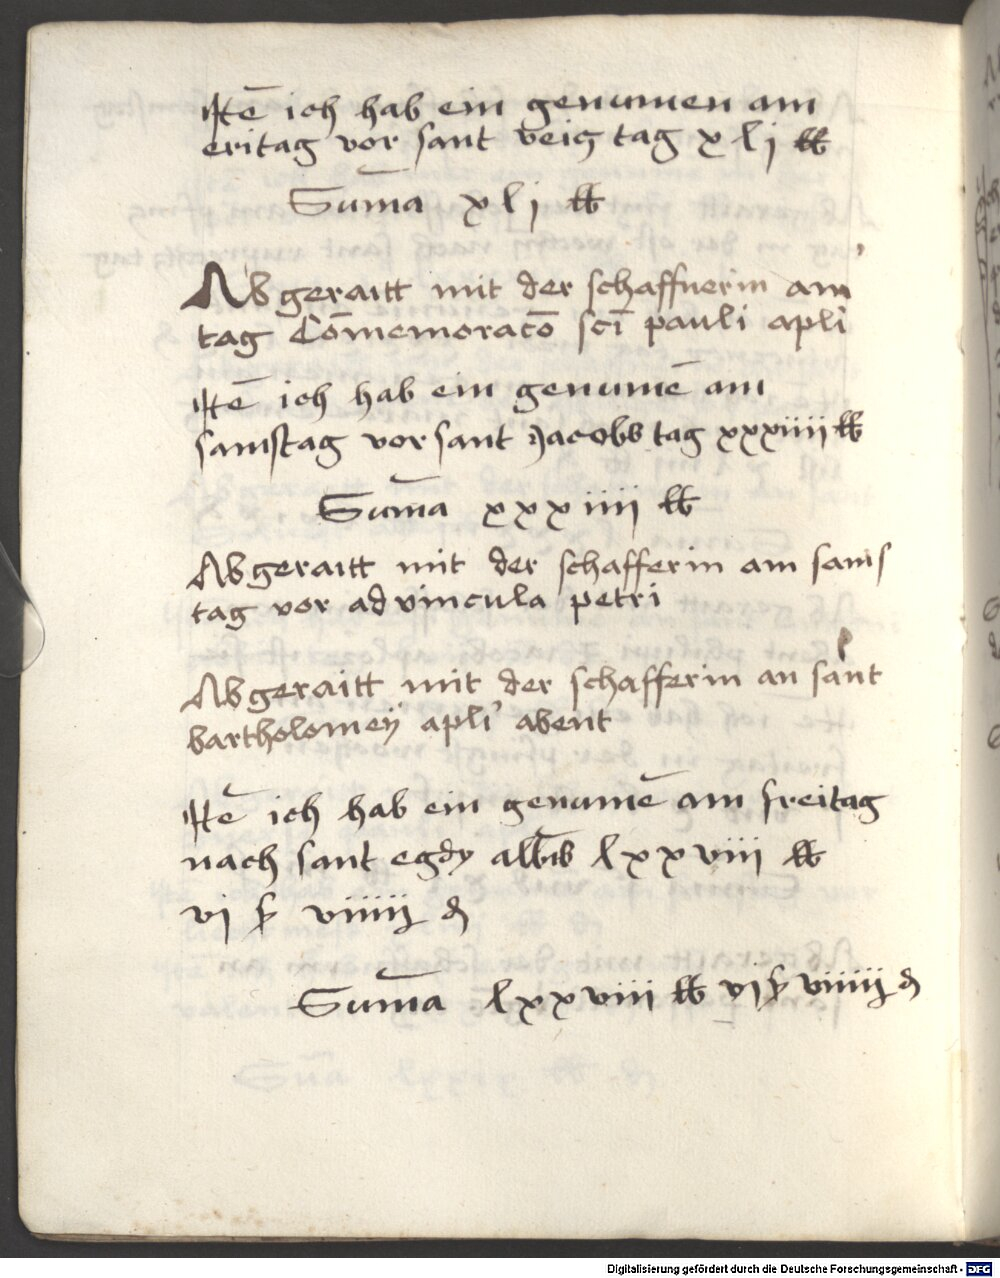 Itē ich hab ein genumen am
eritag vor sant veig tag xlj ℔
Sum̄a xlj ℔
Abgeraitt mit der schaffnerin am
tag Cōmemoracō sci̅ pauli apli̅
Itē ich hab ein genumē am
samstag vor sant Jacobs tag xxxiiii ℔
Sum̄a xxxiiii ℔
Abgeraitt mit der schafferin am sams
tag vor ad vincula petri
Abgeraitt mit der schafferin an sant
bartholomeÿ apli̅ abent
Itē ich hab ein genumē am freitag
nach sant egdy lxxviii ℔
vi ß viiiij ₰
Sum̄a lxxviii ℔ vi ß viiiij ₰
Digitalisierung gefördert durch die Deutsche Forschungsgemeinschaft - DFG